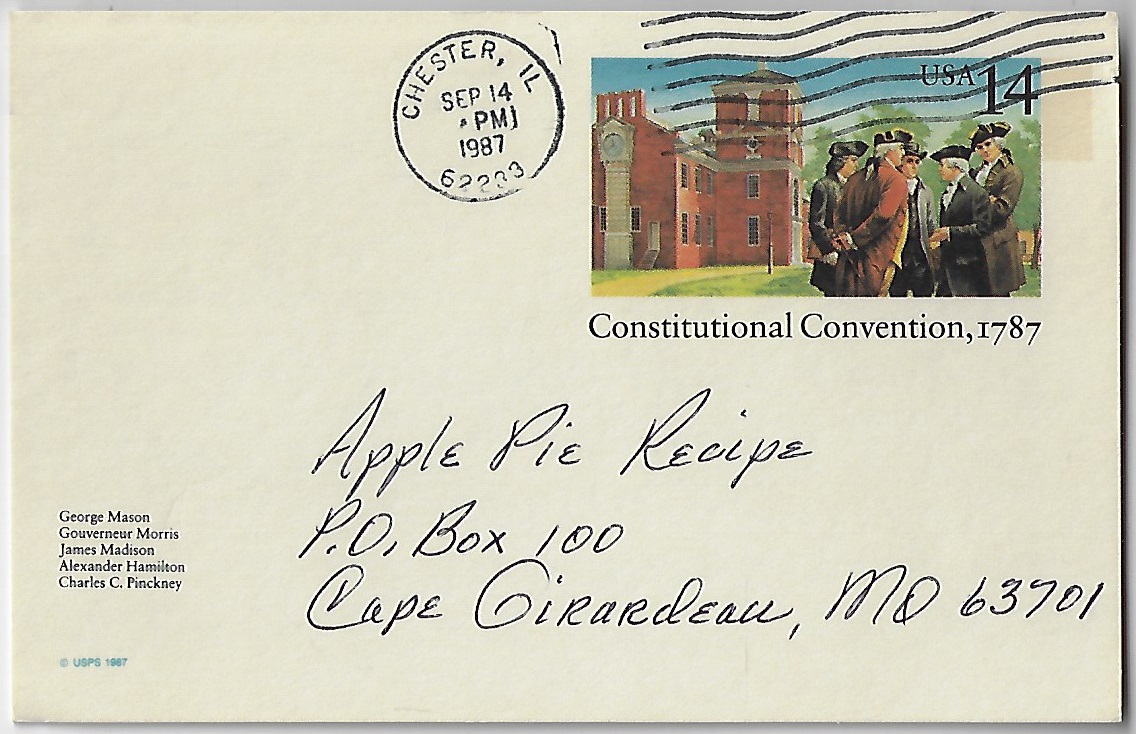 CHESTER, IL
SEP 14
PM
1987
62233
USA 14
Constitutional Convention, 1787
Apple Pie Recipe
P.O. Box 100
Cape Girardeau, MO 63701
George Mason
Gouverneur Morris
James Madison
Alexander Hamilton
Charles C. Pinckney
© USPS 1987